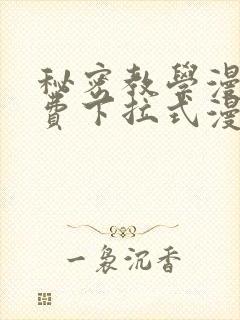 秘密教學漫
費下拉式漫
一裊沉香